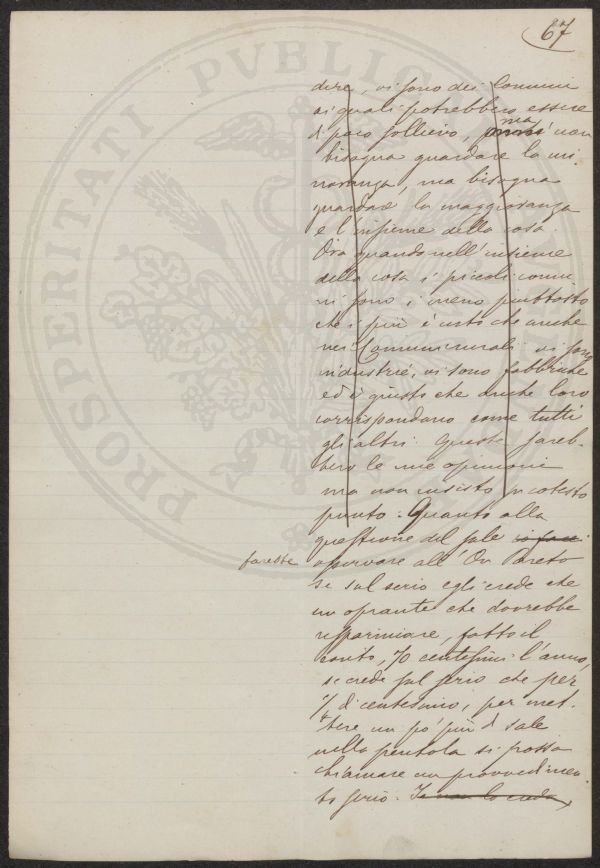 67
dire, vi sono dei Comuni
ai quali potrebbero essere
di poco sollievo, ma non
bisogna guardare la mi-
noranza, ma bisogna
guardare la maggioranza
e l'insieme della cosa.
Ora quando nell'insieme
della cosa i piccoli comu
ni sono i meno piuttosto
che i più è certo che anche
nei Comuni rurali vi sono
industrie, vi sono fabbriche
ed è giusto che anche loro
corrispondano come tutti
gli altri. Queste sareb-
bero le mie opinioni
ma non insisto in cotesto
punto. Quanto alla
questione del sale
farebbe
osservare all'On Pareto
se sul serio egli crede che
un operante che dovrebbe
risparmiare, fatto il
conto, 70 centesimi l'anno,
se crede sul serio che per
di centesimo, per met-
tere un pò più di sale
nella pentola si possa
chiamare un provvedimen
to serio. Io non lo credo,
PROSPERITATI PVBLICAE